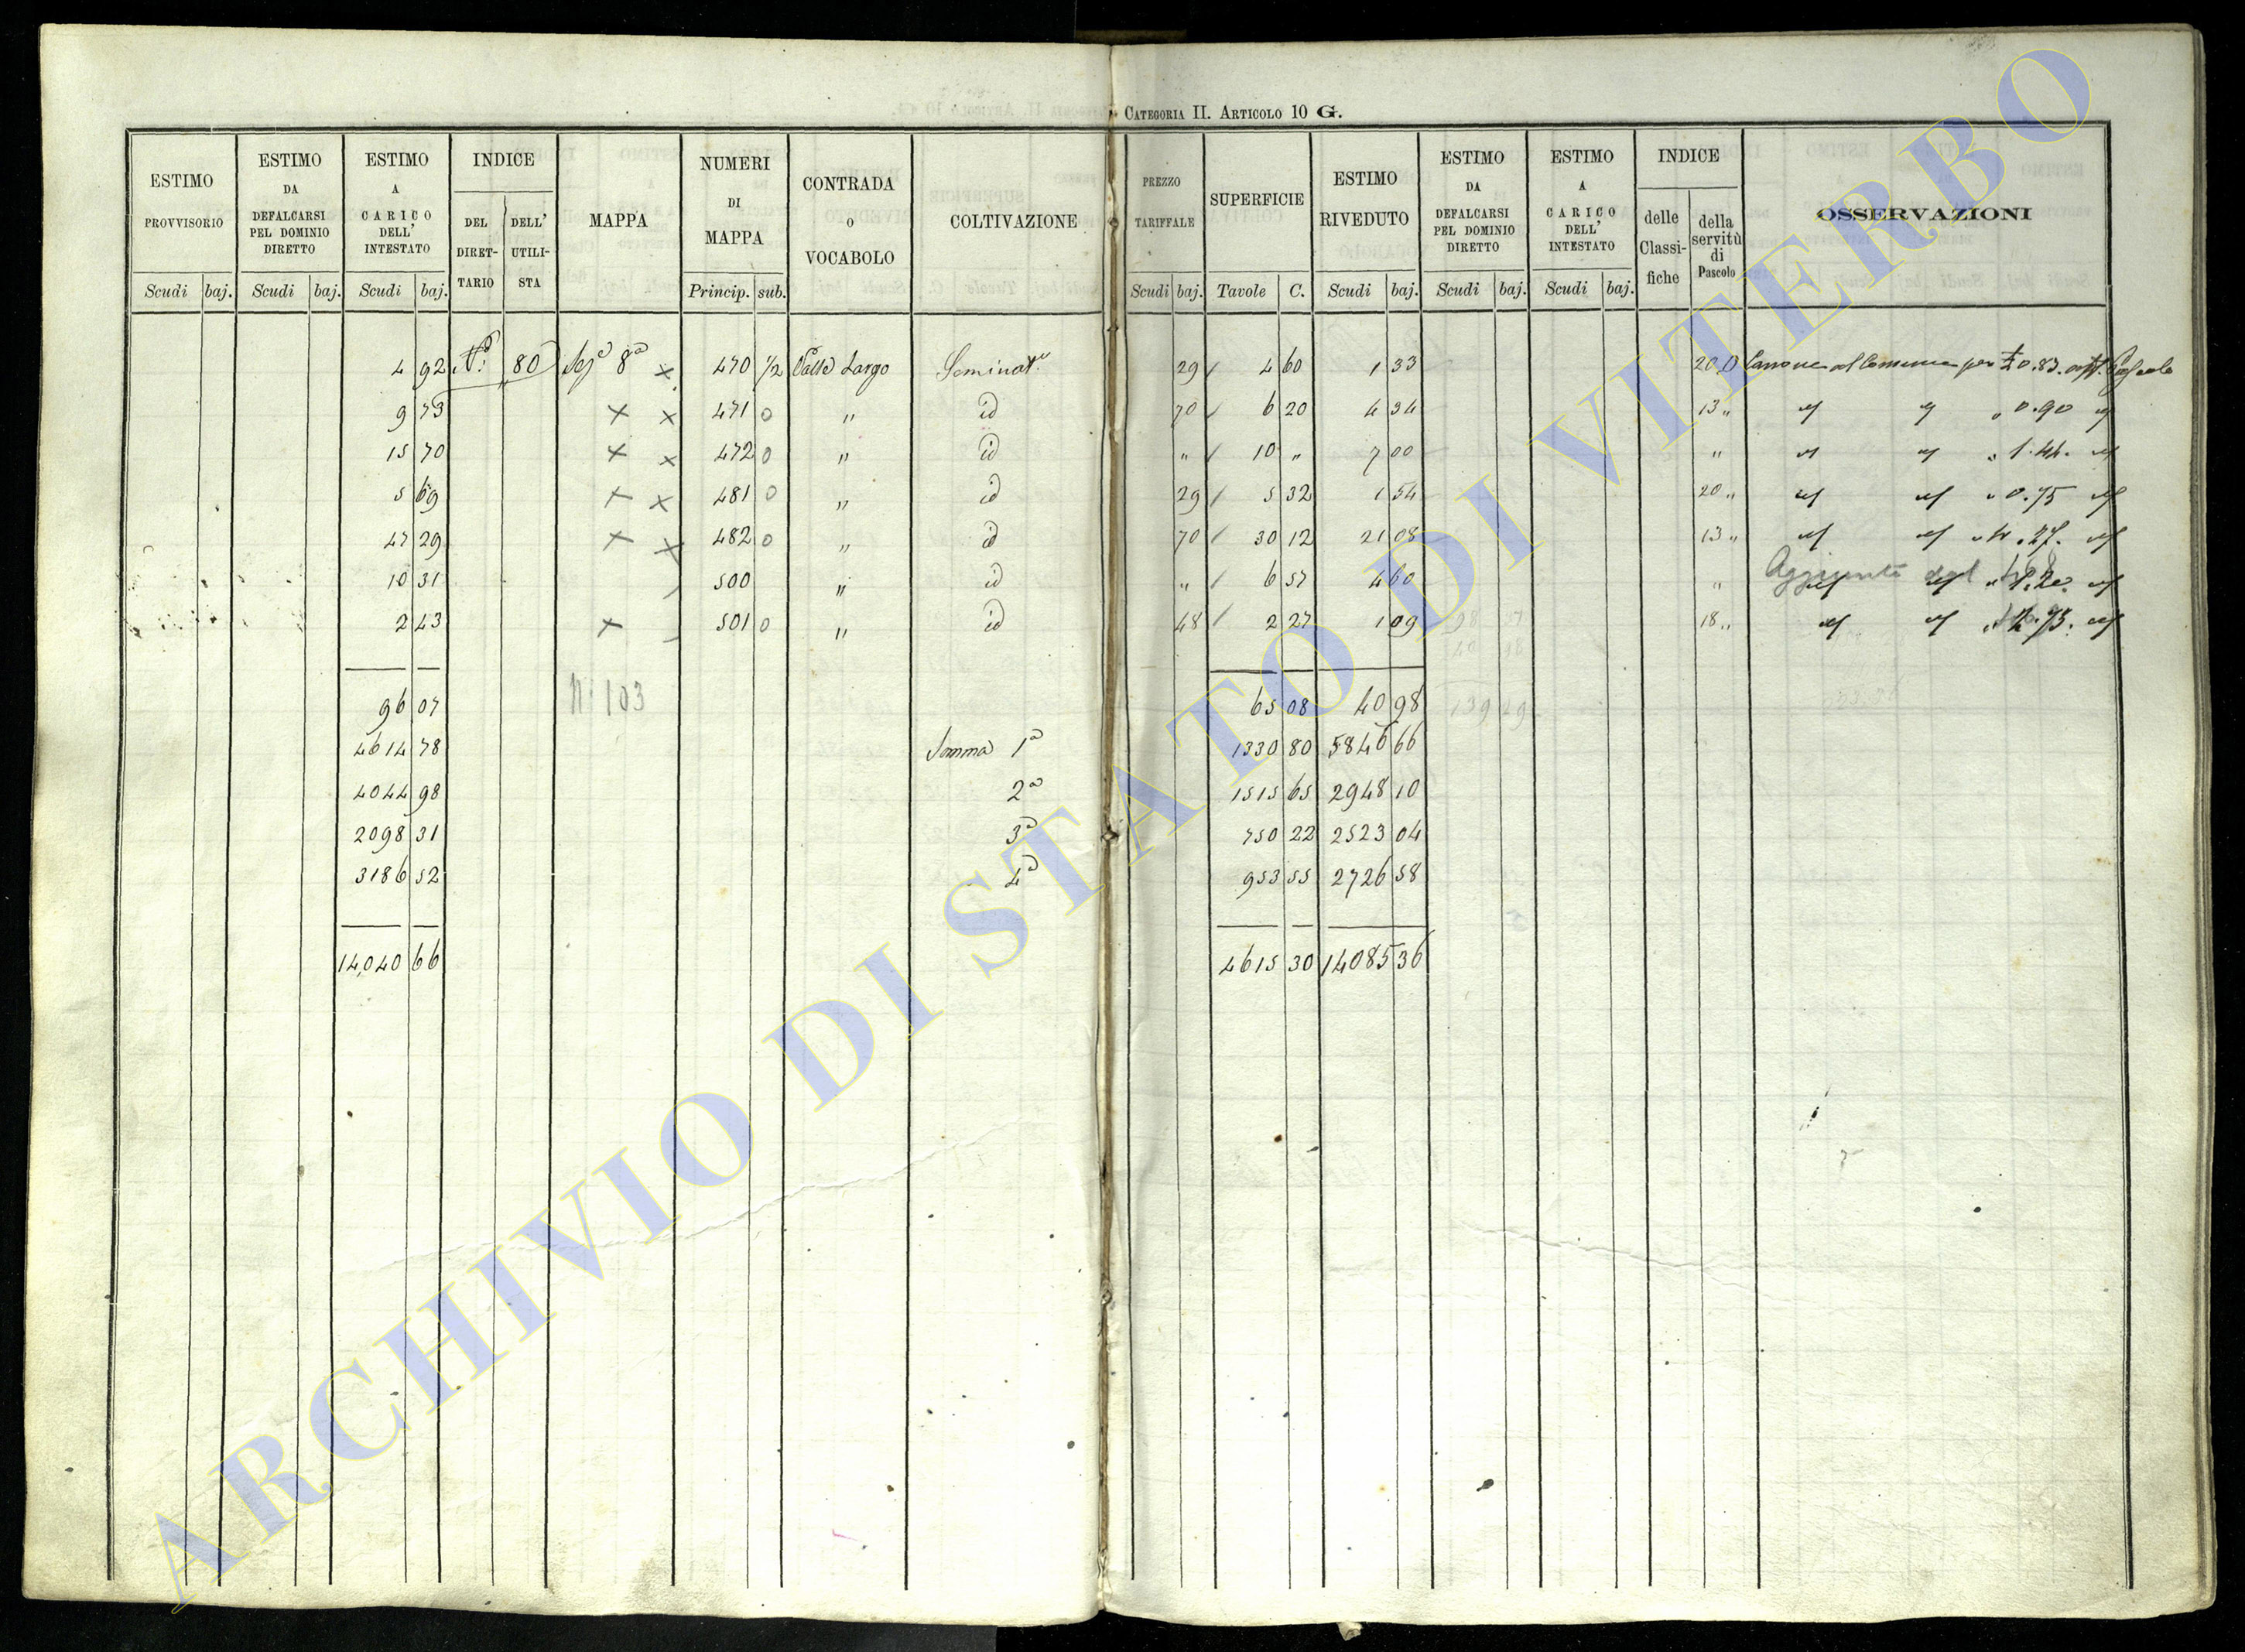 CATEGORIA II. ARTICOLO 10 G.
ESTIMO PROVVISORIO Scudi baj. ESTIMO DA DEFALCARSI PEL DOMINIO DIRETTO Scudi baj. ESTIMO A CARICO DELL' INTESTATO Scudi baj. INDICE DEL DIRETTARIO DELL' UTILISTA MAPPA NUMERI DI MAPPA Princip. sub. CONTRADA O VOCABOLO COLTIVAZIONE PREZZO TARIFFALE Scudi baj. SUPERFICIE Tavole C. ESTIMO RIVEDUTO Scudi baj. ESTIMO DA DEFALCARSI PEL DOMINIO DIRETTO Scudi baj. ESTIMO A CARICO DELL' INTESTATO Scudi baj. INDICE delle Classifiche della servitù di Pascolo OSSERVAZIONI
4 92 80 8ª x 470 1/2 Valle Largo 29 4 60 1 33 20 D Canone al Comune per 0.83.
9 73 x x 471 0 " id 70 6 20 4 34 13 " " 0.90
15 70 x x 472 0 " id " 10 " 7 00 " " 1.44.
5 69 x x 481 0 " id 29 5 32 1 54 20 " " 0.75
47 29 x x 482 0 " id 70 30 12 21 08 13 "
10 31 500 " id " 6 57 4 60 " Aggiunta dal
2 43 x 501 0 " id 48 2 27 1 09 18 "
96 07 N. 103 65 08 40 98 139 29
4614 78 Somma 1ª 1330 80 5846 66
4044 98 2ª 1515 65 2948 10
2098 31 3ª 750 22 2523 04
3186 52 4ª 953 55 2726 58
14,040 66 4615 30 14085 36
ARCHIVIO DI STATO DI VITERBO